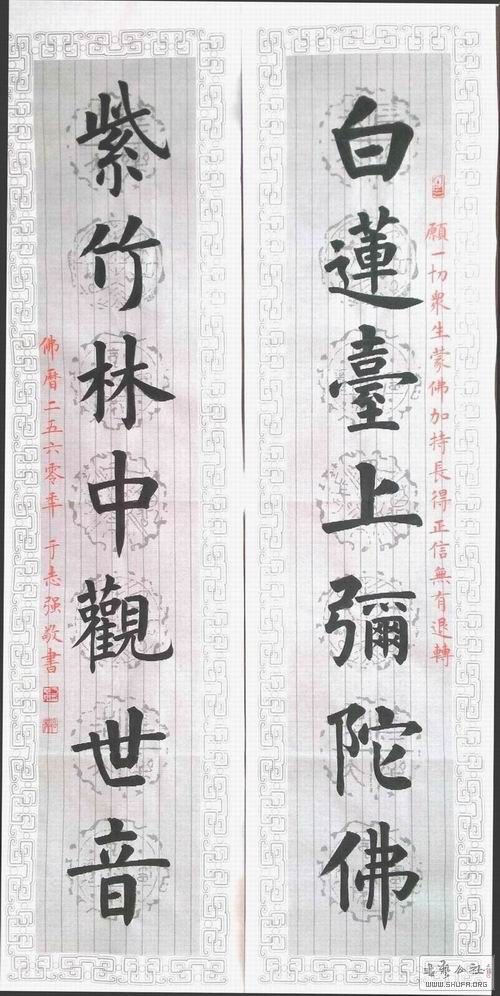 願一切衆生蒙佛加持長得正信無有退轉
白蓮臺上彌陀佛
紫竹林中觀世音
佛曆二五六零年 于志强敬書
WWW.SHUFA.ORG